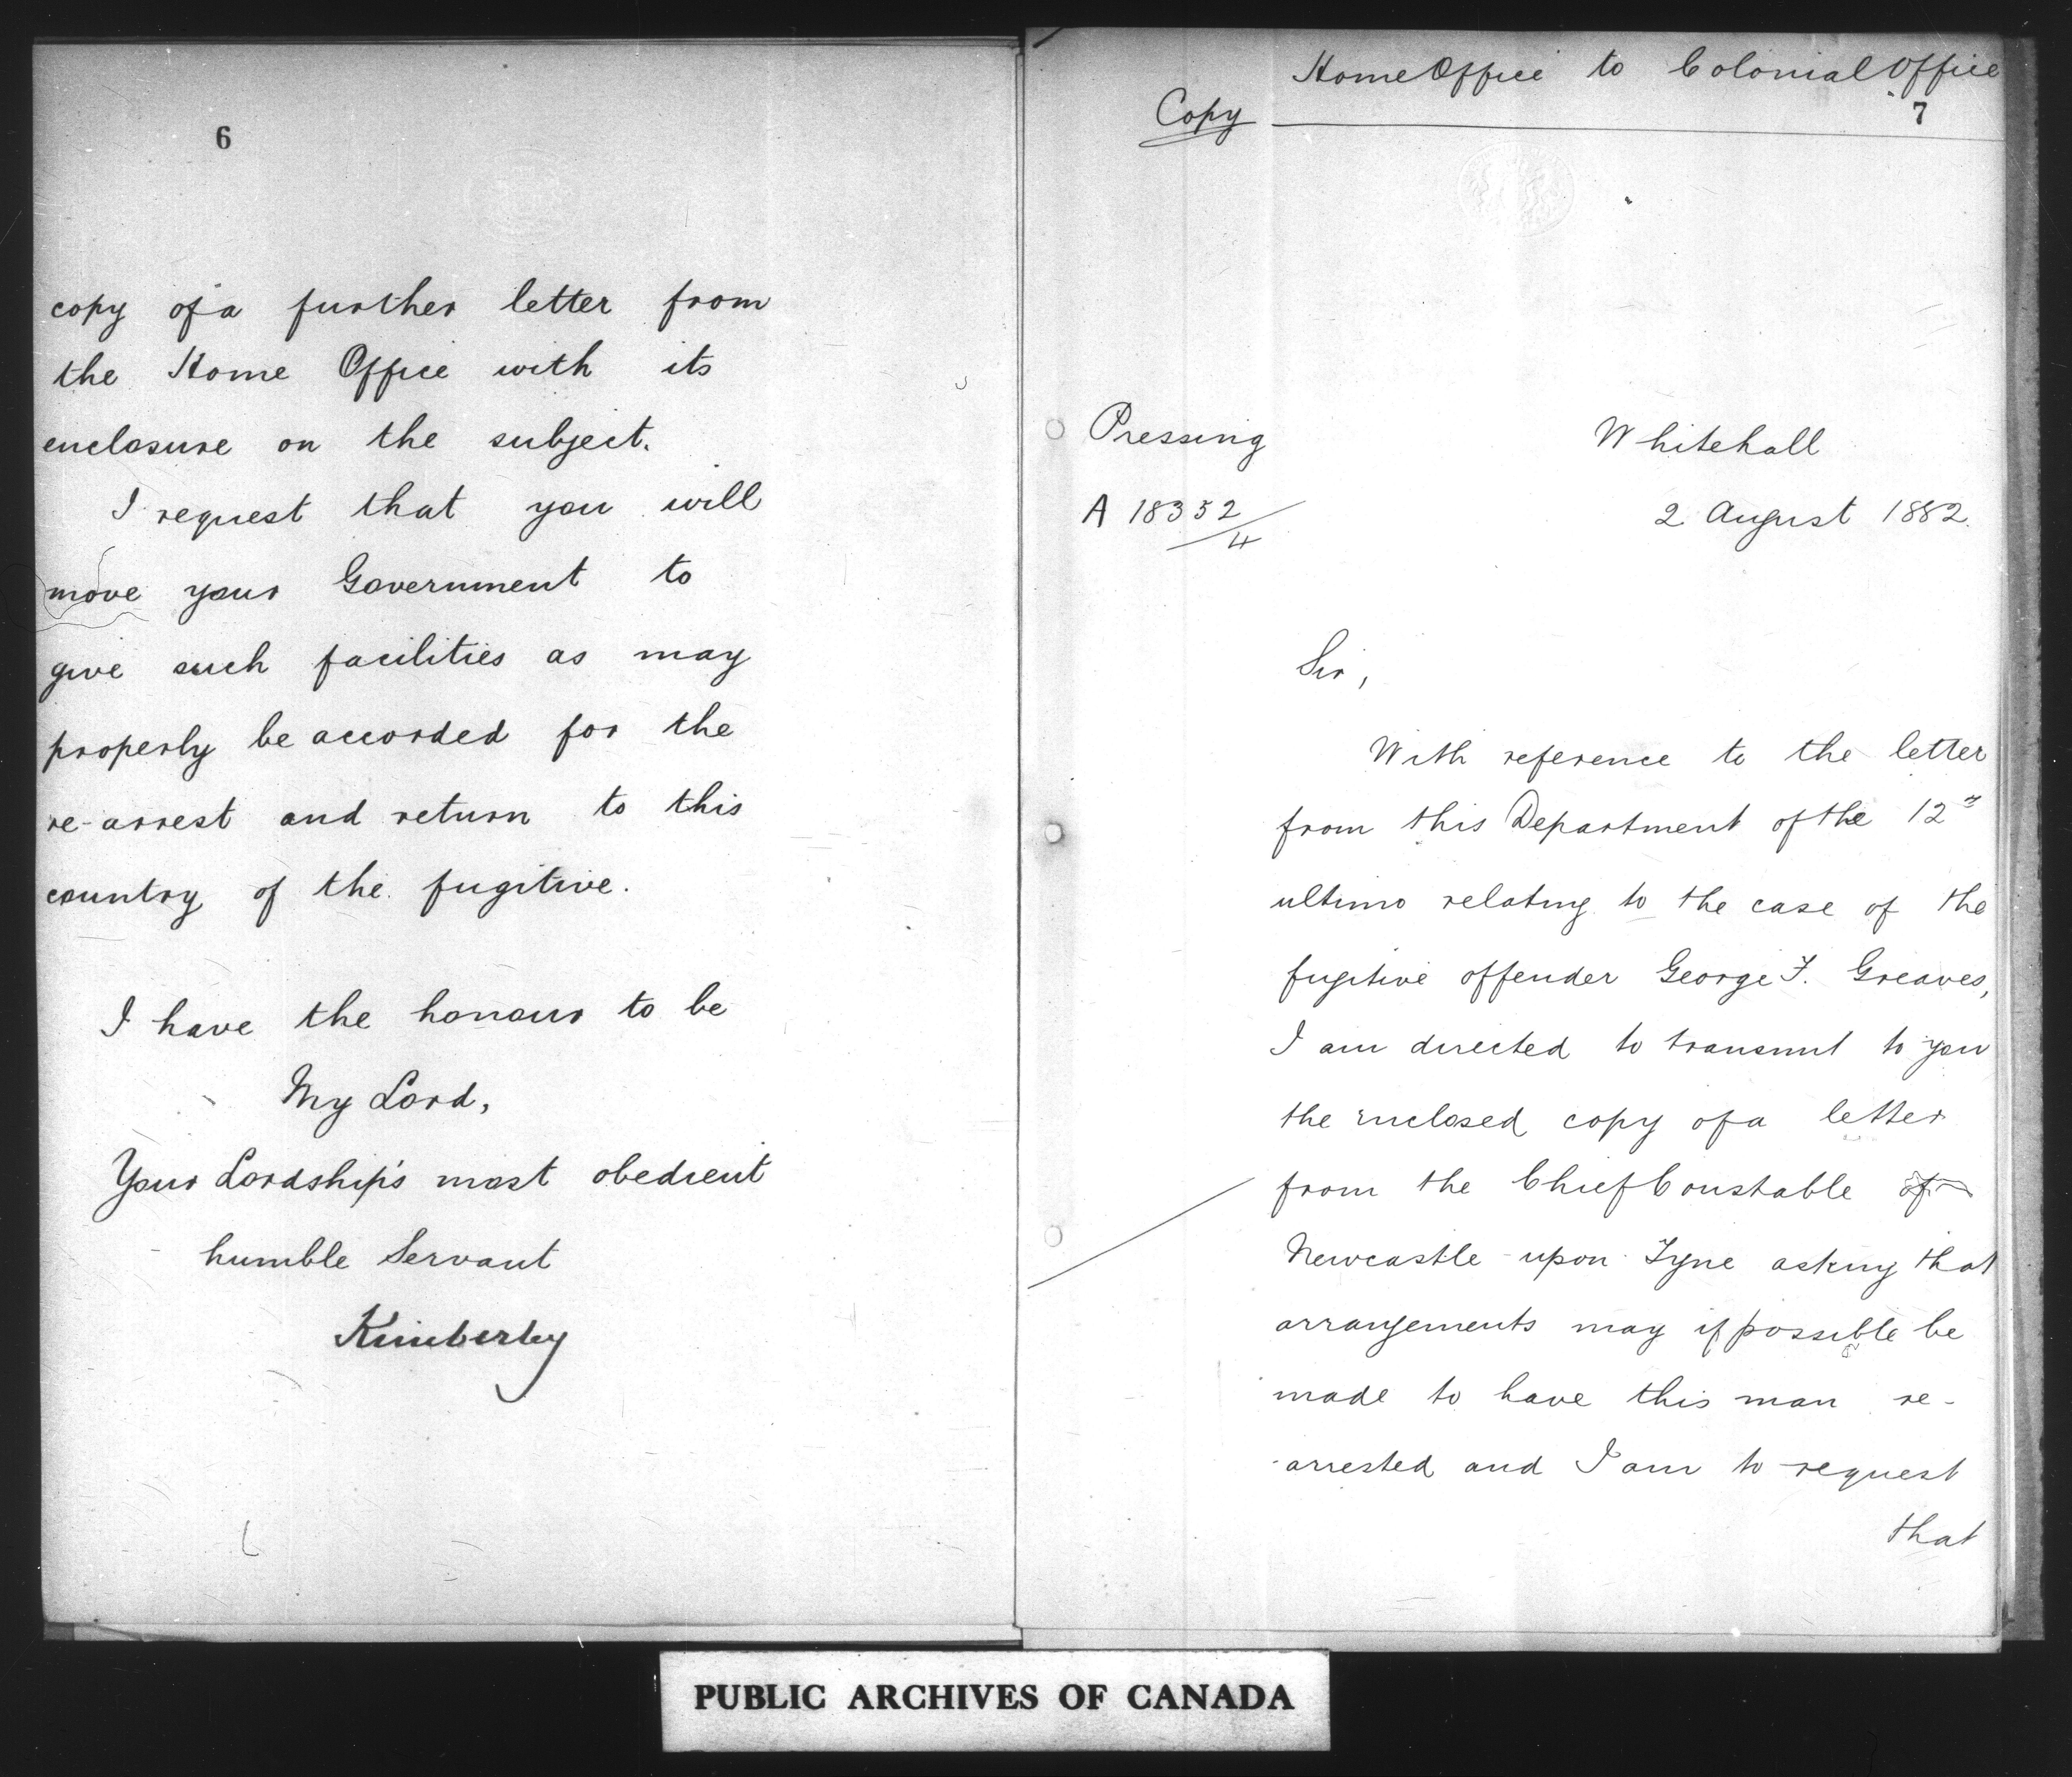 6
copy of a further letter from
the Home Office with its
enclosure on the subject.
I request that you will
move your Government to
give such facilities as may
properly be accorded for the
re-arrest and return to this
country of the fugitive.
I have the honour to be
My Lord,
Your Lordship's most obedient
humble Servant
Kimberley
Home Office to Colonial Office
Copy
7
Pressing
Whitehall
A 18352/4
2 August 1882.
Sir,
With reference to the letter
from this Department of the 12th
ultimo relating to the case of the
fugitive offender George F. Greaves,
I am directed to transmit to you
the enclosed copy of a letter
from the Chief Constable of
Newcastle-upon-Tyne asking that
arrangements may if possible be
made to have this man re-
-arrested and I am to request
that
PUBLIC ARCHIVES OF CANADA